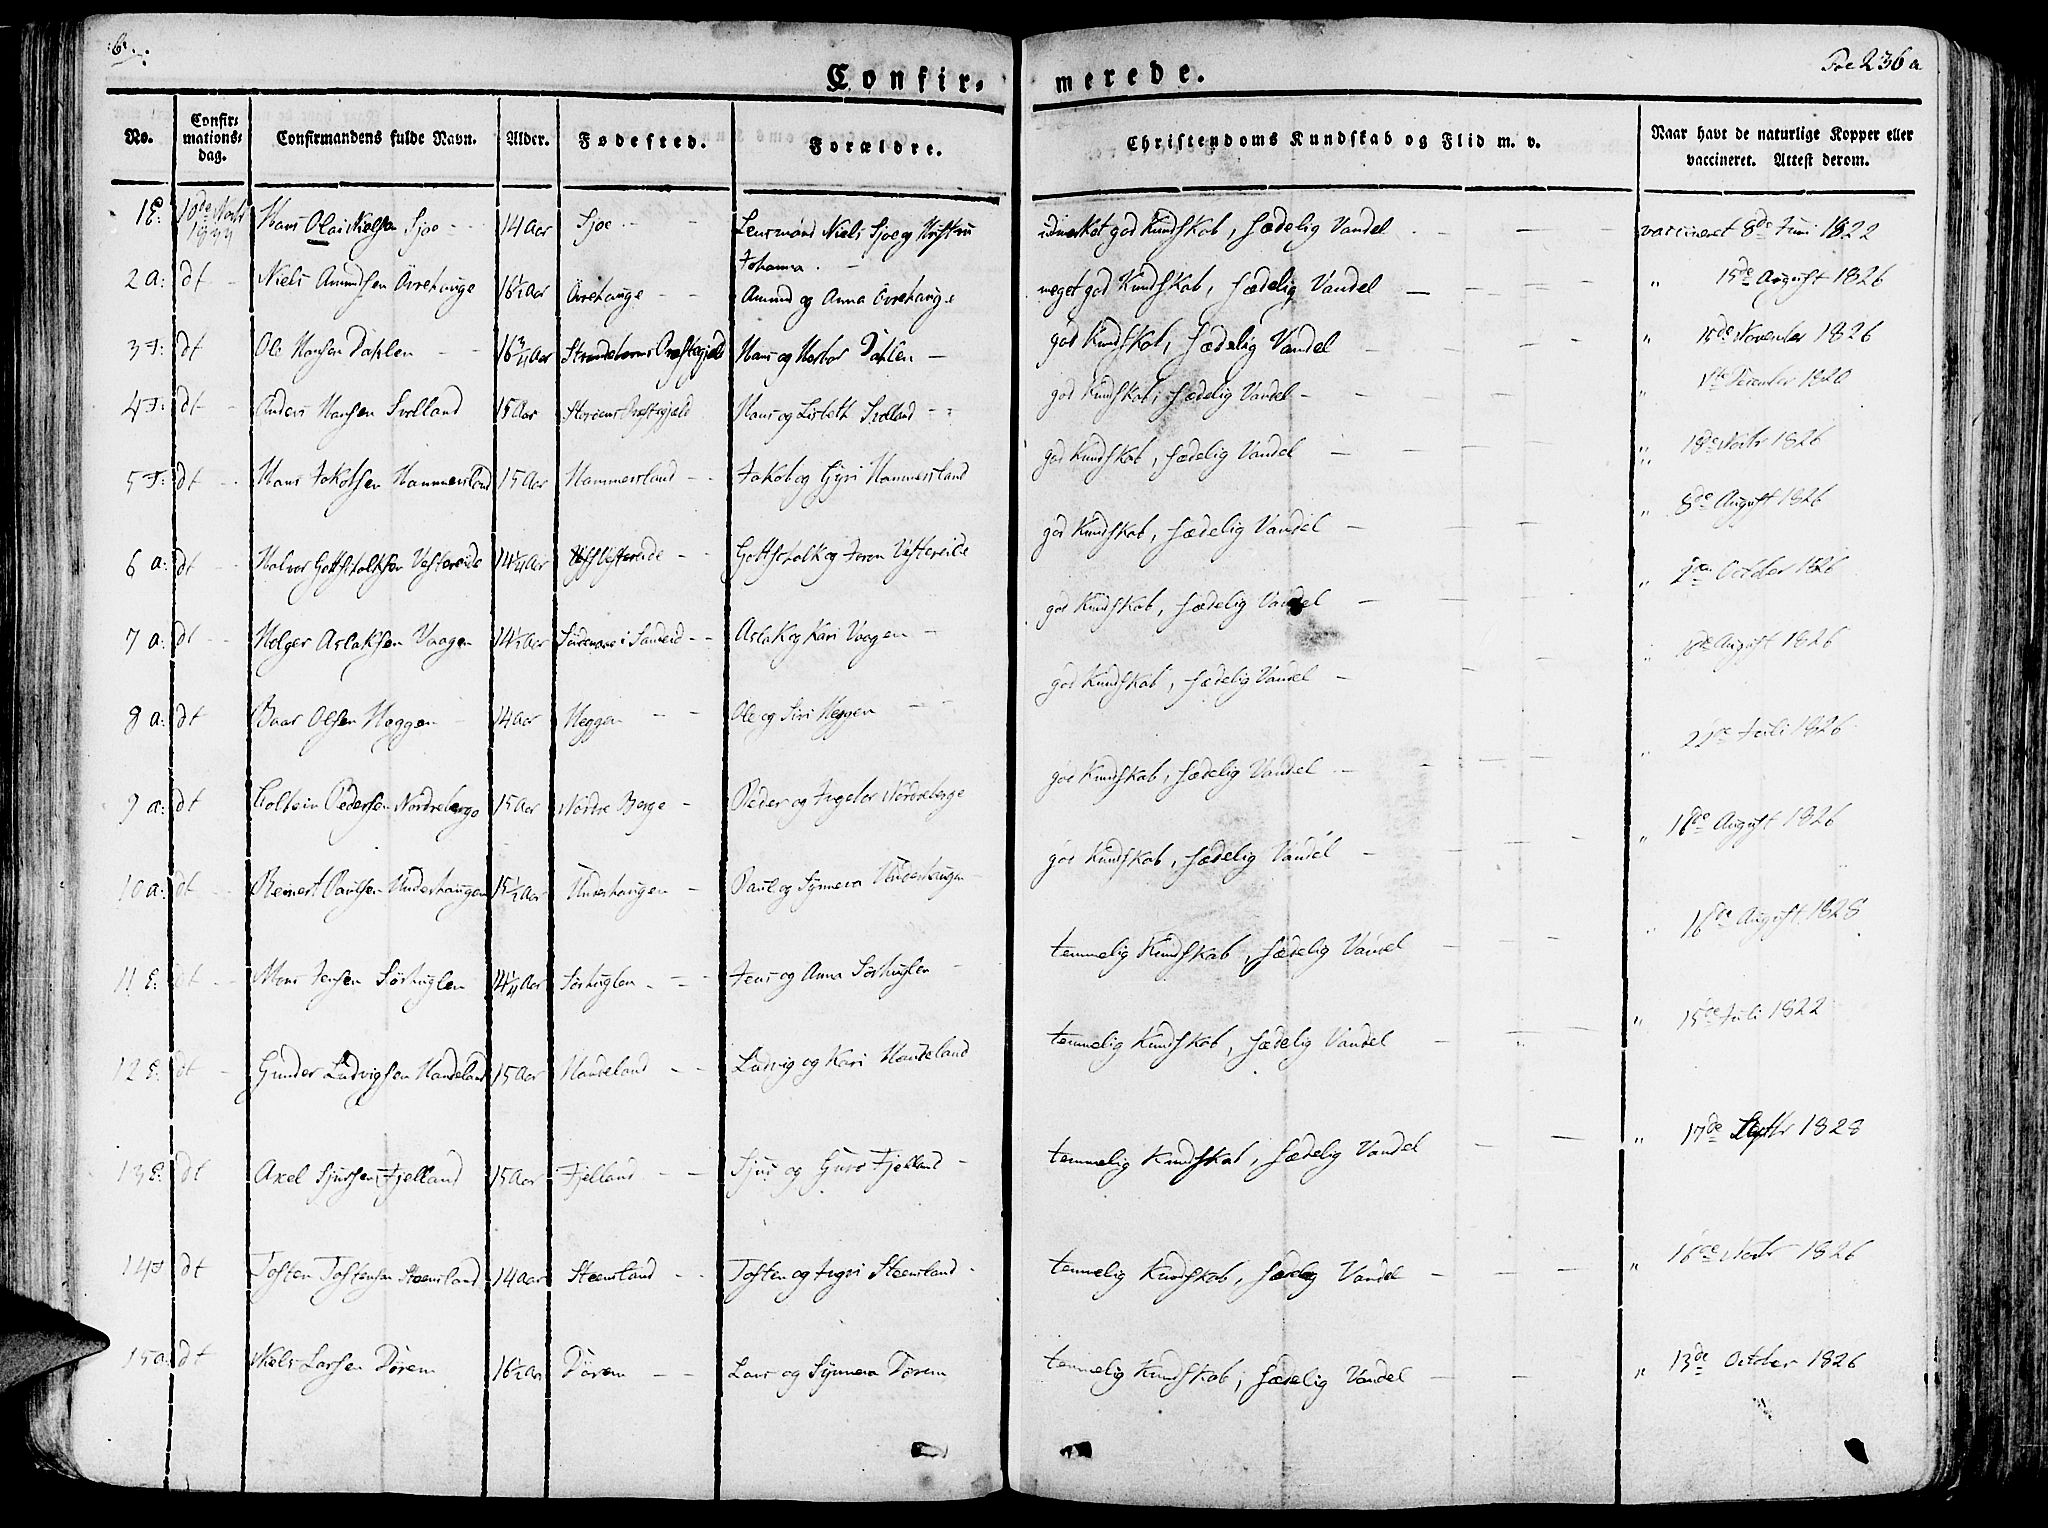 :6:
Confir-
merede.
Foe 236 a
No.
Confir-
mations-
dag.
Confirmandens fulde Navn.
Alder.
Fødested.
Forældre.
Christendoms Kundskab og Flid m. v.
Naar havt de naturlige Kopper eller
vaccineret. Attest derom.
1 E: 10de Hans Olai Nielsen Sjoe 14 Aar Sjoe Lensmand Niels Sjoe og
Johanna god Kundskab, sædelig Vandel vaccineret 8de Juni 1822
2 a: dt Niels Amundsen Øvrehauge 16½ Aar Øvrehauge Amund og Anna Øvrehauge meget god Kundskab, sædelig Vandel " 15de August 1826
3 F: dt Ole Hansen Dahlen 16¾ Aar Strandebarms Præstegjeld Hans og Dahlen god Kundskab, sædelig Vandel " 15de November 1826
4 F: dt Anders Hansen Svolland 15 Aar Præstegjeld Hans og Lisbeth Svolland god Kundskab, sædelig Vandel " December 1820
5 F: dt Hans Jakobsen Hammersland 15 Aar Hammersland Jakob og Gyri Hammersland god Kundskab, sædelig Vandel " 18de Novbr 1826
6 a: dt Halvor Gottschalksen Vestereide 14¼ Aar Vestereide Gottschalk og Joren Vestereide god Kundskab, sædelig Vandel " 8de August 1826
7 a: dt Holger Aslaksen Vaagen 14½ Aar i Sandeid Aslak og Kari Vaagen god Kundskab, sædelig Vandel " October 1826
8 a: dt Baar Olsen Heggen 14 Aar Heggen Ole og Siri Heggen god Kundskab, sædelig Vandel " August 1826
9 a: dt Colbein Pedersen Nordreberge 15 Aar Nordre Berge Peder og Ingebor Nordreberge god Kundskab, sædelig Vandel " Juli 1826
10 a: dt Reinert Paulsen Underhaugen 15½ Aar Underhaugen Paul og Synneva Underhaugen god Kundskab, sædelig Vandel " 18de August 1826
11 E: dt Mons Jensen Sørhuglen 14¼ Aar Sørhuglen Jens og Anna Sørhuglen temmelig Kundskab, sædelig Vandel " 16de August 1828
12 E: dt Gunder Ludvigsen Handeland 15 Aar Handeland Ludvig og Kari Handeland temmelig Kundskab, sædelig Vandel " 15de Juli 1822
13 E: dt Axel Sjursen Fjelland 15 Aar Fjelland Sjur og Guro Fjelland temmelig Kundskab, sædelig Vandel " 17de Septbr 1828
14 F dt Tosten Tostensen Steensland 14 Aar Steensland Tosten og Ingri Steensland temmelig Kundskab, sædelig Vandel " 16de Novbr 1826
15 a: dt Niels Larsen Dørem 16½ Aar Dørem Lars og Synneva Dørem temmelig Kundskab, sædelig Vandel " 13de October 1826